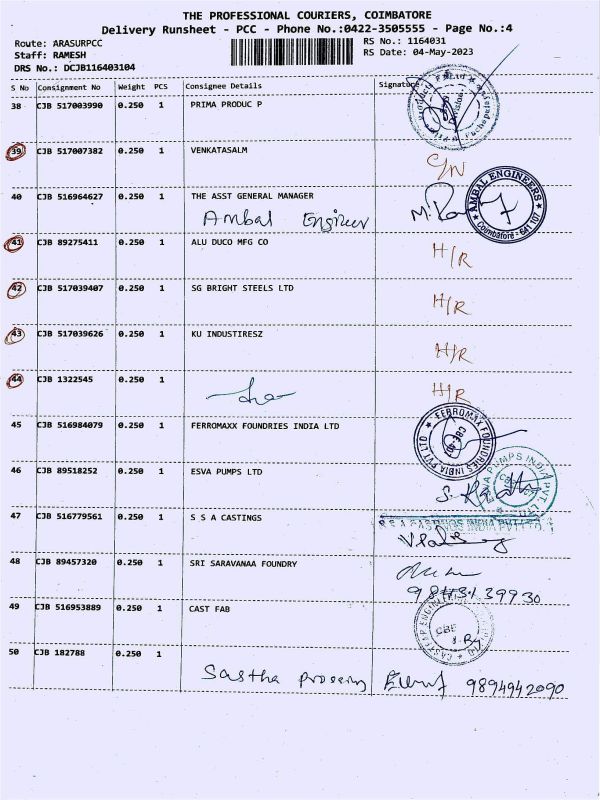 THE PROFESSIONAL COURIERS, COIMBATORE
Delivery Runsheet - PCC - Phone No.:0422-3505555 - Page No.:4
Route: ARASURPCC RS No.: 1164031
Staff: RAMESH RS Date: 04-May-2023
DRS No.: DCJB116403104
S No Consignment No Weight PCS Consignee Details Signature
38 CJB 517003990 0.250 1 PRIMA PRODUC P
39 CJB 517007382 0.250 1 VENKATASALM C/N
40 CJB 516964627 0.250 1 THE ASST GENERAL MANAGER
Ambal Engineer
AMBAL ENGINEERS
Coimbatore - 641 107
41 CJB 89275411 0.250 1 ALU DUCO MFG CO H/R
42 CJB 517039407 0.250 1 SG BRIGHT STEELS LTD H/R
43 CJB 517039626 0.250 1 KU INDUSTIRESZ H/R
44 CJB 1322545 0.250 1 H/R
45 CJB 516984079 0.250 1 FERROMAXX FOUNDRIES INDIA LTD
FERROMAX FOUNDRIES INDIA PVT LTD
46 CJB 89518252 0.250 1 ESVA PUMPS LTD
ESVA PUMPS INDIA PVT LTD
47 CJB 516779561 0.250 1 S S A CASTINGS
S S A CASTINGS INDIA PVT LTD
48 CJB 89457320 0.250 1 SRI SARAVANAA FOUNDRY
49 CJB 516953889 0.250 1 CAST FAB
CBE
50 CJB 182788 0.250 1
Sastha 9894942090